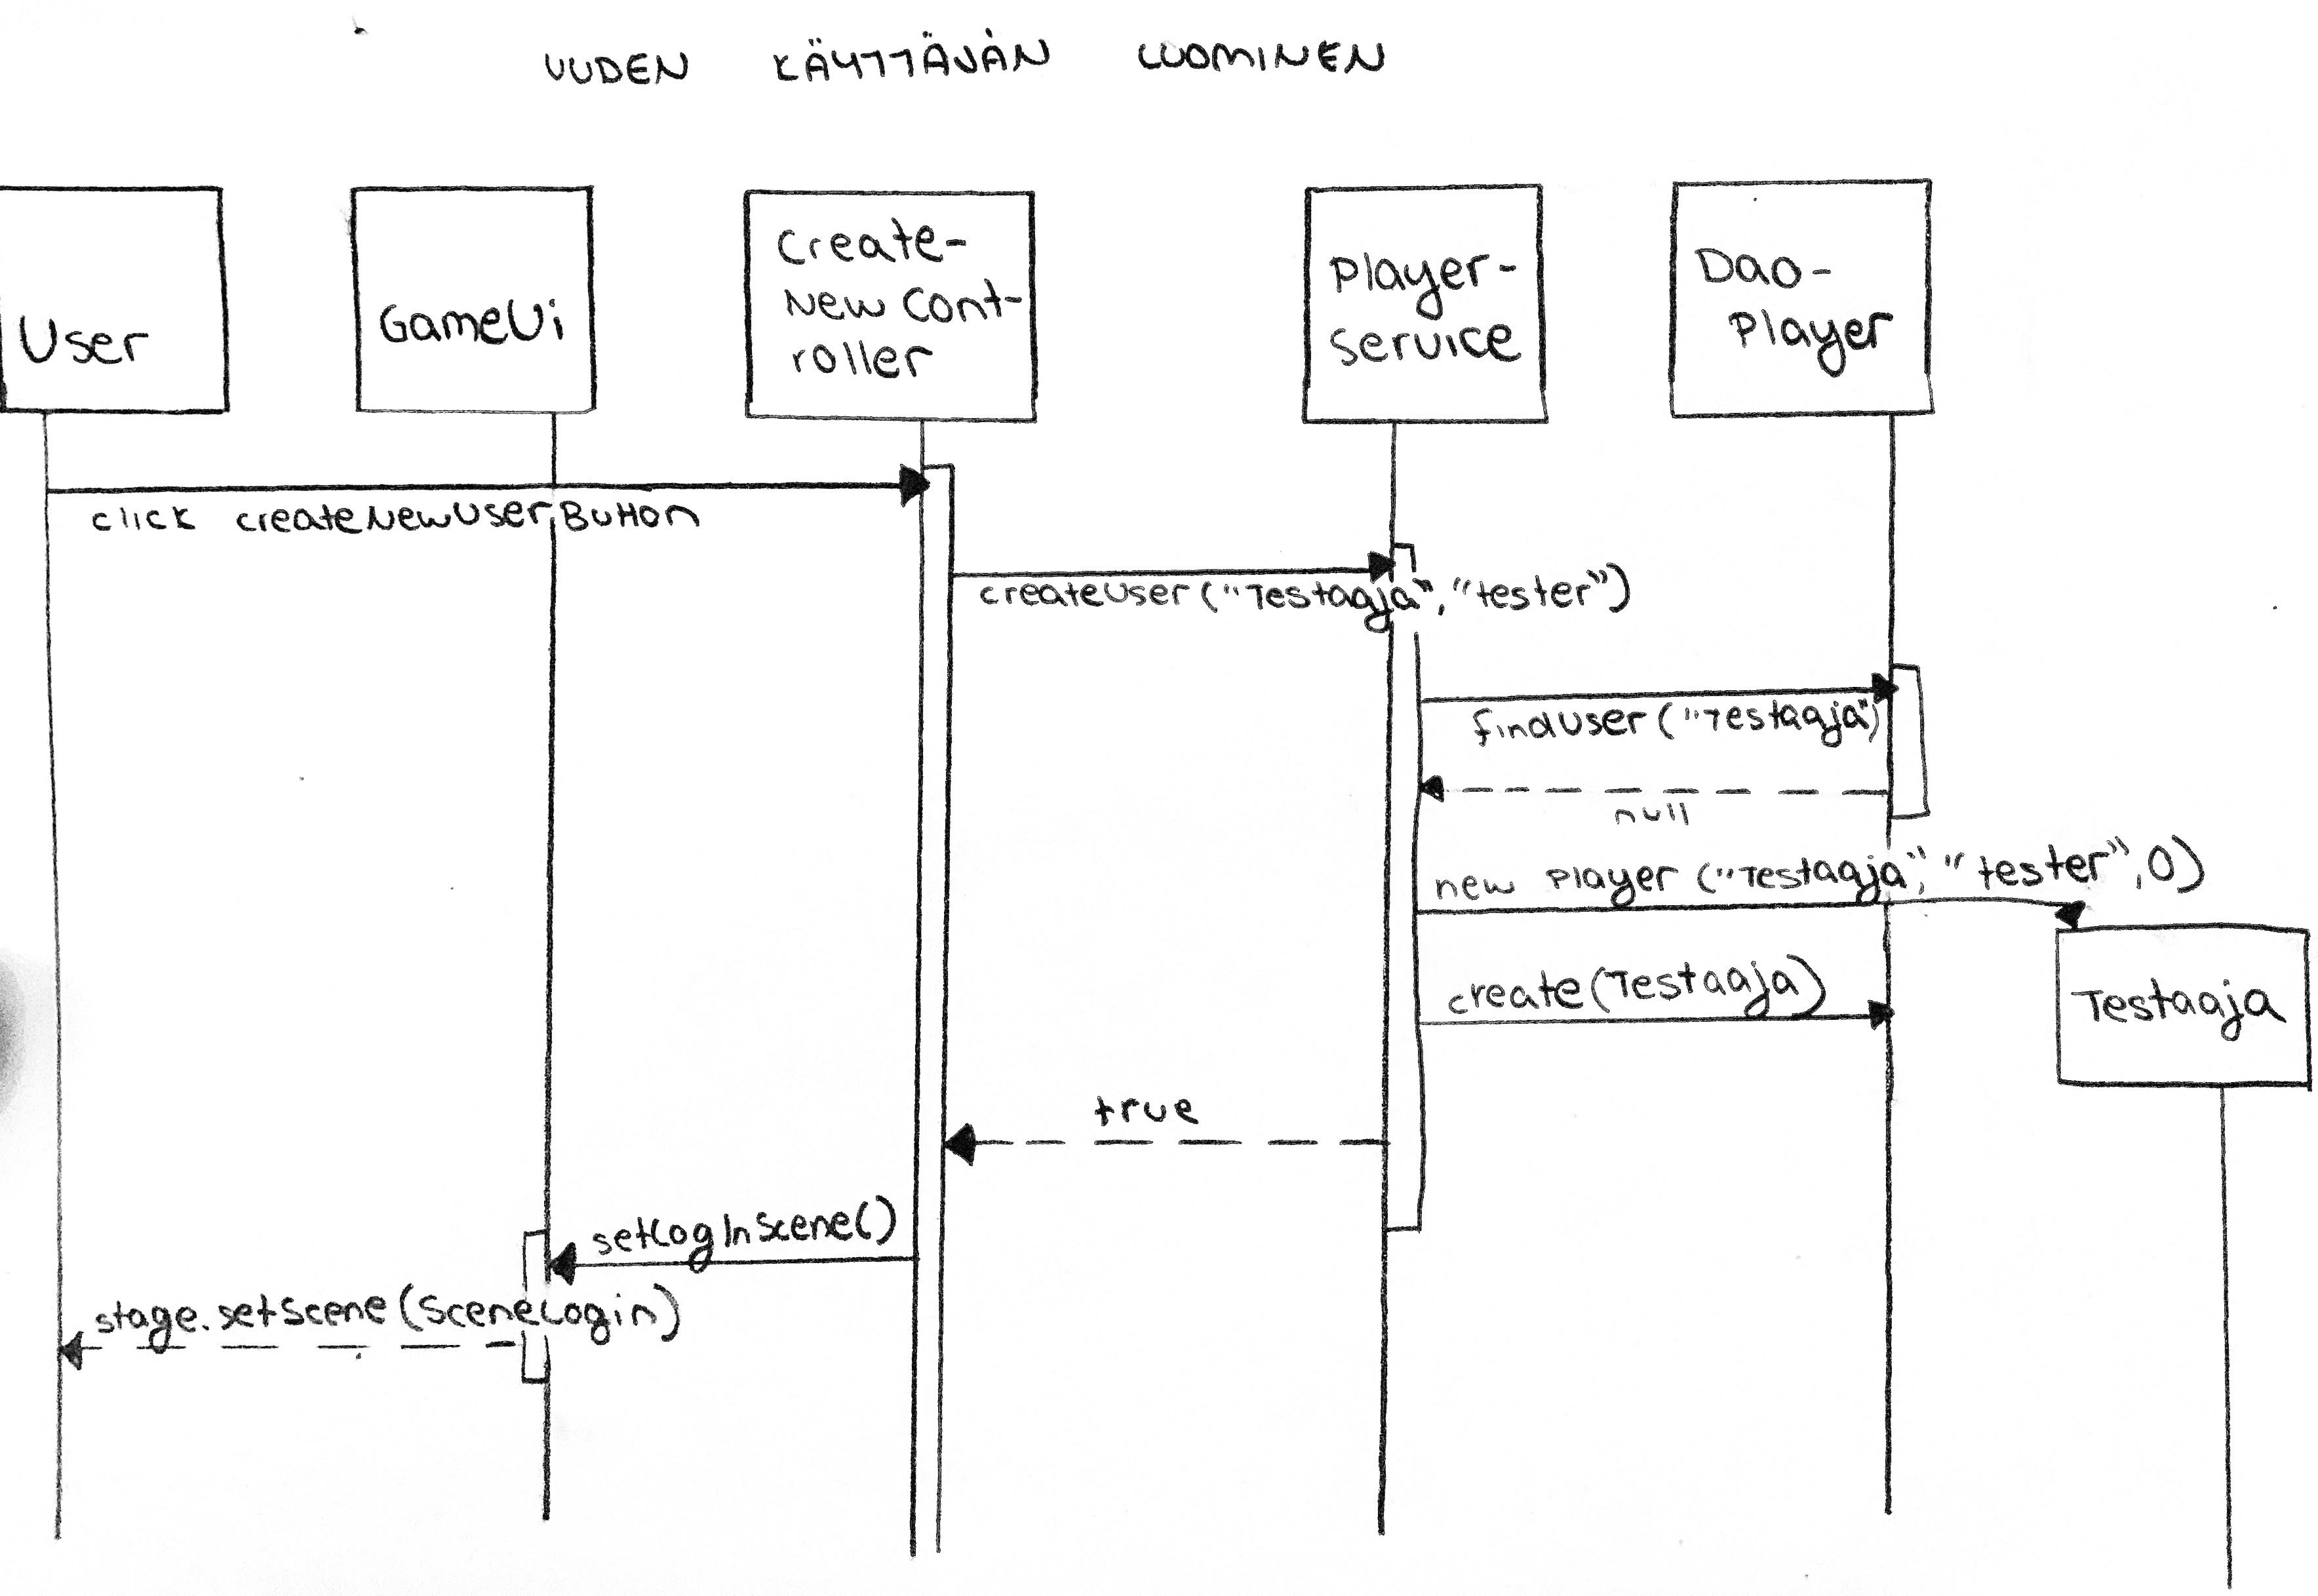 UUDEN KÄYTTÄJÄN LUOMINEN
User
GameUi
Create-
New Cont-
roller
Player-
Service
Dao-
Player
click createNewUserButton
createUser("Testaaja", "tester")
findUser("Testaaja")
null
new Player ("Testaaja", "tester", 0)
create(Testaaja)
Testaaja
true
setLogInScene()
stage.setScene(SceneLogin)